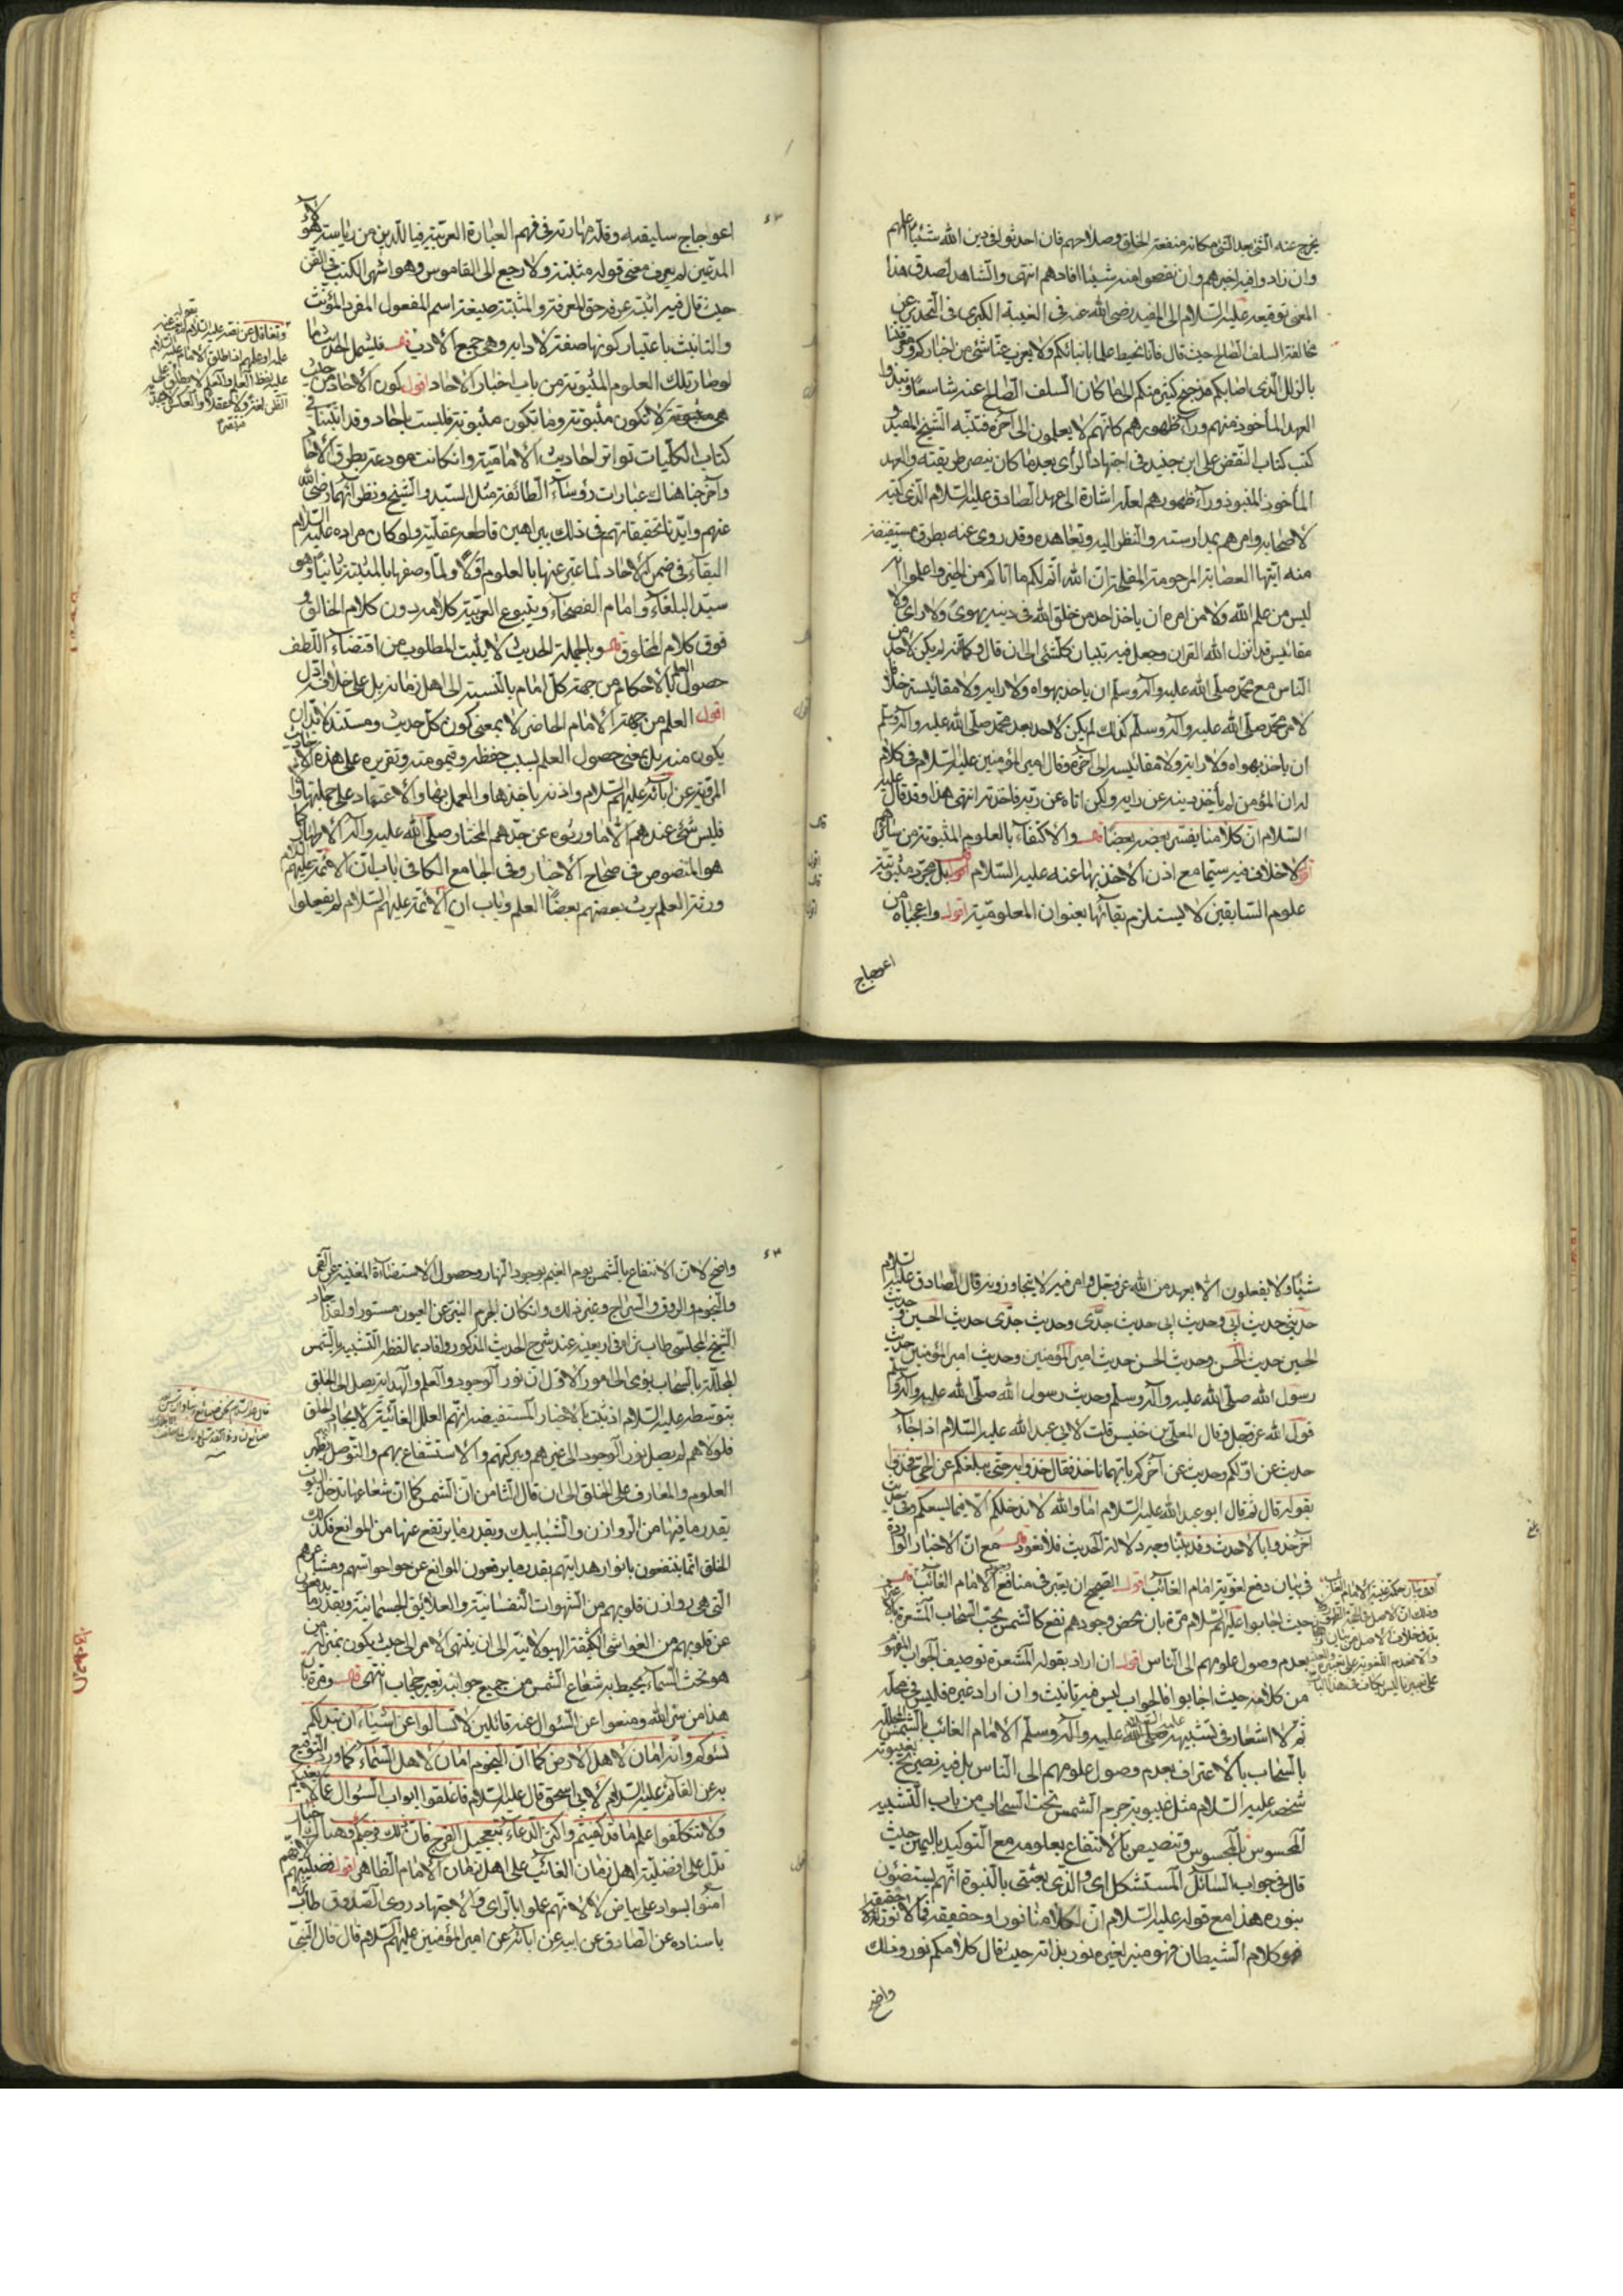 يخرج عنه الشئ بعد الشئ مكانه منفعة الخلق وصلاحهم فان احدثوا في دين الله شيئا اعلمهم
وان زادوا فيه اخبرهم وان نقصوا منه شيئا افادهم انتهى والشاهد لصدق هذا
المعنى توقيعه عليه السلام الى المفيد رضى الله عنه في الغيبة الكبرى في التحذير عن
مخالفة السلف الصالح حيث قال فانا نحيط علما بانبائكم ولا يعزب عنا شئ من اخباركم ومعرفتنا
بالزلل الذى اصابكم مذ جنح كثير منكم الى ما كان السلف الصالح عنه شاسعا ونبذوا
العهد المأخوذ منهم وراء ظهورهم كانهم لا يعلمون الى آخره فتنبه الشيخ المفيد و
كتب كتاب النقض على ابن جنيد في اجتهاد الرأى بعد ما كان
المأخوذ المنبوذ وراء ظهورهم لعله اشارة الى عهد الصادق عليه السلام الذى كتبه
لاصحابه وامرهم بمدارسته والنظر اليه وتعاهده وقد روى عنه بطرق مستفيضة
منه ايتها العصابة المرحومة المفلحة ان الله اتم لكم ما اتاكم من الخير واعلموا انه
ليس من علم الله ولا من امره ان ياخذ احد من خلق الله في دينه بهوى ولا راى ولا
مقائيس قد انزل الله القران وجعل فيه تبيان كلشئ الى ان قال وكما انه لم يكن لاحد من
الناس مع محمد صلى الله عليه وآله وسلم ان ياخذ بهواه ولا رايه ولا مقائيسه خلافا
لامر محمد صلى الله عليه وآله وسلم كذلك لم يكن لاحد بعد محمد صلى الله عليه وآله وسلم
ان ياخذ بهواه ولا رايه ولا مقائيسه الى آخره وقال امير المؤمنين عليه السلام في كلام
له ان المؤمن لم يأخذ دينه عن رايه ولكن اتاه عن ربه فاخذ به انتهى هذا وقد قال عليه
السلام ان كلامنا يفسر بعضه بعضا والاكتفاء بالعلوم المثبوتة من سائرهم
لاخلاف فيه سيما مع اذن الاخذ بها عنه عليه السلام بل مجرد مثبوتية
علوم السابقين لا يستلزم بقائها بعنوان المعلومية اقول واعجباه من
اعوجاج
اعوجاج سليقته وقلة مهارته في فهم العبارة العربية فيا للدين من رياسة هؤلاء
المدعين لم يعرف معنى قوله مثبتة ولا رجع الى القاموس وهو اشهر الكتب في الفن
حيث قال فيه اثبته عرفه حق المعرفة والمثبتة صيغة اسم المفعول المفرد المؤنث
والتانيث باعتبار كونها صفة لادابه وهى جمع الادب فليشمل الحديث ما
لو صار تلك العلوم المثبوتة من باب اخبار الاحاد اقول كون الاحاد من حيث
هى لا تكون مثبوتة وما تكون مثبوتة فليست باحاد وقد اثبتنا في
كتاب الكليات تواتر احاديث الامامية وان كانت مودعة بطرق الاحاد
وآخرجنا هناك عبارات رؤساء الطائفة مثل السيد والشيخ ونظرائهما رضى الله
عنهم وايدنا تحقيقاتهم في ذلك ببراهين قاطعة عقلية ولو كان مراده عليه السلام
البقاء في ضمن الاحاد لما عبر عنها بالعلوم اولا ولما وصفها بالمثبتة ثانيا وهو
سيد البلغاء وامام الفصحاء وينبوع العربية كلامه دون كلام الخالق و
فوق كلام المخلوق وبالجملة الحديث لا يثبت المطلوب من اقتضاء اللطف
حصول العلم بالاحكام من جهة كل امام بالنسبة الى اهل زمانه بل على خلافه ادل
اقول العلم من جهة الامام الحاضر لا بمعنى كون كل حديث ومستند لابد ان
يكون منه بل بمعنى حصول العلم بسبب حفظه وقيمومته وتقريره على هذه الاحاديث
المروية عن آبائه عليهم السلام واذنه باخذها والعمل بها والاعتماد على حملتها
فليس شئ عندهم الا ما ورثوه عن جدهم المختار صلى الله عليه وآله الاطهار كما
هو المنصوص في صحاح الاخبار وفي الجامع الكافي باب ان الائمة عليهم السلام
ورثة العلم يرث بعضهم بعضا العلم وباب ان الائمة عليهم السلام لم يفعلوا
شيئا ولا يفعلون الا بعهد من الله عز وجل وامر منه لا يتجاوزونه قال الصادق عليه السلام
حديثي حديث ابى وحديث ابى حديث جدى وحديث جدى حديث الحسين وحديث
الحسين حديث الحسن وحديث الحسن حديث امير المؤمنين وحديث امير المؤمنين حديث
رسول الله صلى الله عليه وآله وسلم وحديث رسول الله صلى الله عليه وآله وسلم
قول الله عز وجل وقال المعلى بن خنيس قلت لابي عبد الله عليه السلام اذا جاء
حديث عن اولكم وحديث عن آخركم بايهما ناخذ فقال خذوا به حتى يبلغكم عن الحى فخذوا
بقوله قال ثم قال ابو عبد الله عليه السلام اما والله لا ندخلكم الا فيما يسعكم وفي حديث
آخر خذوا بالاحدث وقد بينا وجه دلالة الحديث فلا نعود مع ان الاخبار الواردة
في بيان دفع لغوية امام الغائب اقول الصحيح ان يعبر في منافع وجود الامام الغائب
حيث اجابوا عليهم السلام مرة بان محض وجودهم نفع كالشمس تحت السحاب المشعرة بالاعتراف
بعدم وصول علومهم الى الناس اقول ان اراد بقوله المشعرة توصيف الجواب المفهوم
من كلامه حيث اجابوا فالجواب ليس فيه تانيث وان اراد غيره فليس في محله
ثم لا اشعار في تشبيهه صلى الله عليه وآله وسلم الامام الغائب بالشمس المجللة
بالسحاب بالاعتراف بعدم وصول علومهم الى الناس بل فيه تصريح بغيبوبة
شخصه عليه السلام مثل غيبوبة جرم الشمس تحت السحاب من باب التشبيه
المحسوس بالمحسوس وتنصيص بالانتفاع بعلومه مع التوكيد باليمين حيث
قال في جواب السائل المستشكل اى والذى بعثنى بالنبوة انهم يستضيئون
بنوره هذا مع قوله عليه السلام ان لكلامنا نورا وحقيقة فما لا نور له ولا حقيقة
فهو كلام الشيطان فهو منير لغيره نور بذاته حيث قال كلامكم نور وذلك
واضح
واضح لان الانتفاع بالشمس يوم الغيم بوجود النهار وحصول الاستضاءة المغنية عن القمر
والنجوم والبروق والسراج وغير ذلك وان كان الجرم النير عن العيون مستورا ولقد اجاد
الشيخ المجلسى طاب ثراه في اربعينه عند شرح الحديث المذكور وافاد بما لفظه التشبيه بالشمس
المجللة بالسحاب يومى الى امور الاول ان نور الوجود والعلم والهداية يصل الى الخلق
بتوسطه عليه السلام اذ ثبت بالاخبار المستفيضة انهم العلل الغائية لايجاد الخلق
فلولاهم لم يصل نور الوجود الى غيرهم وببركتهم والاستشفاع بهم والتوسل اليهم يظهر
العلوم والمعارف على الخلق الى ان قال الثامن ان الشمس كما ان شعاعها تدخل البيوت
بقدر ما فيها من الروازن والشبابيك وبقدر ما يرتفع عنها من الموانع فكذلك
الخلق انما ينتفعون بانوار هدايتهم بقدر ما يرفعون الموانع عن حواسهم ومشاعرهم
التى هى روازن قلوبهم من الشهوات النفسانية والعلائق الجسمانية وبقدر ما يدفعون
عن قلوبهم من الغواشى الكثيفة الهيولانية الى ان ينتهى الامر الى حيث يكون بمنزلة من
هو تحت السماء يحيط به شعاع الشمس من جميع جوانبه بغير حجاب انتهى ومرة بان
هذا من سر الله ومنعوا عن السؤال عنه قائلين لا تسألوا عن اشياء ان تبد لكم
تسؤكم وانه امان لاهل الارض كما ان النجوم امان لاهل السماء كما ورد التوقيع
به عن القائم عليه السلام لابي اسحق قال عليه السلام فاغلقوا ابواب السؤال عما لا يعنيكم
ولا تتكلفوا علم ما قد كفيتم واكثروا الدعاء بتعجيل الفرج فان ذلك فرجكم وهناك اخبار
تدل على افضلية اهل زمان الغائب على اهل زمان الامام الظاهر اقول افضليتهم لانهم
آمنوا بسواد على بياض لا لانهم عملوا بالراى والاجتهاد روى الصدوق طاب ثراه
باسناده عن الصادق عن ابيه عن آبائه عن امير المؤمنين عليهم السلام قال قال النبى